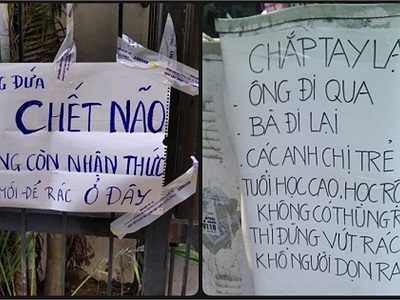 G ĐỨA
CHẾT NÃO
NG CÒN NHÂN THỨC
MỚI ĐỂ RÁC Ở ĐÂY
CHẮP TAY LẠ
ÔNG ĐI QUA
BÀ ĐI LẠI
. CÁC ANH CHỊ TRẺ
TUỔI HỌC CAO, HỌC RỘ
KHÔNG CÓ THÙNG R
THÌ ĐỪNG VỨT RÁC
KHỔ NGƯỜI DỌN RA